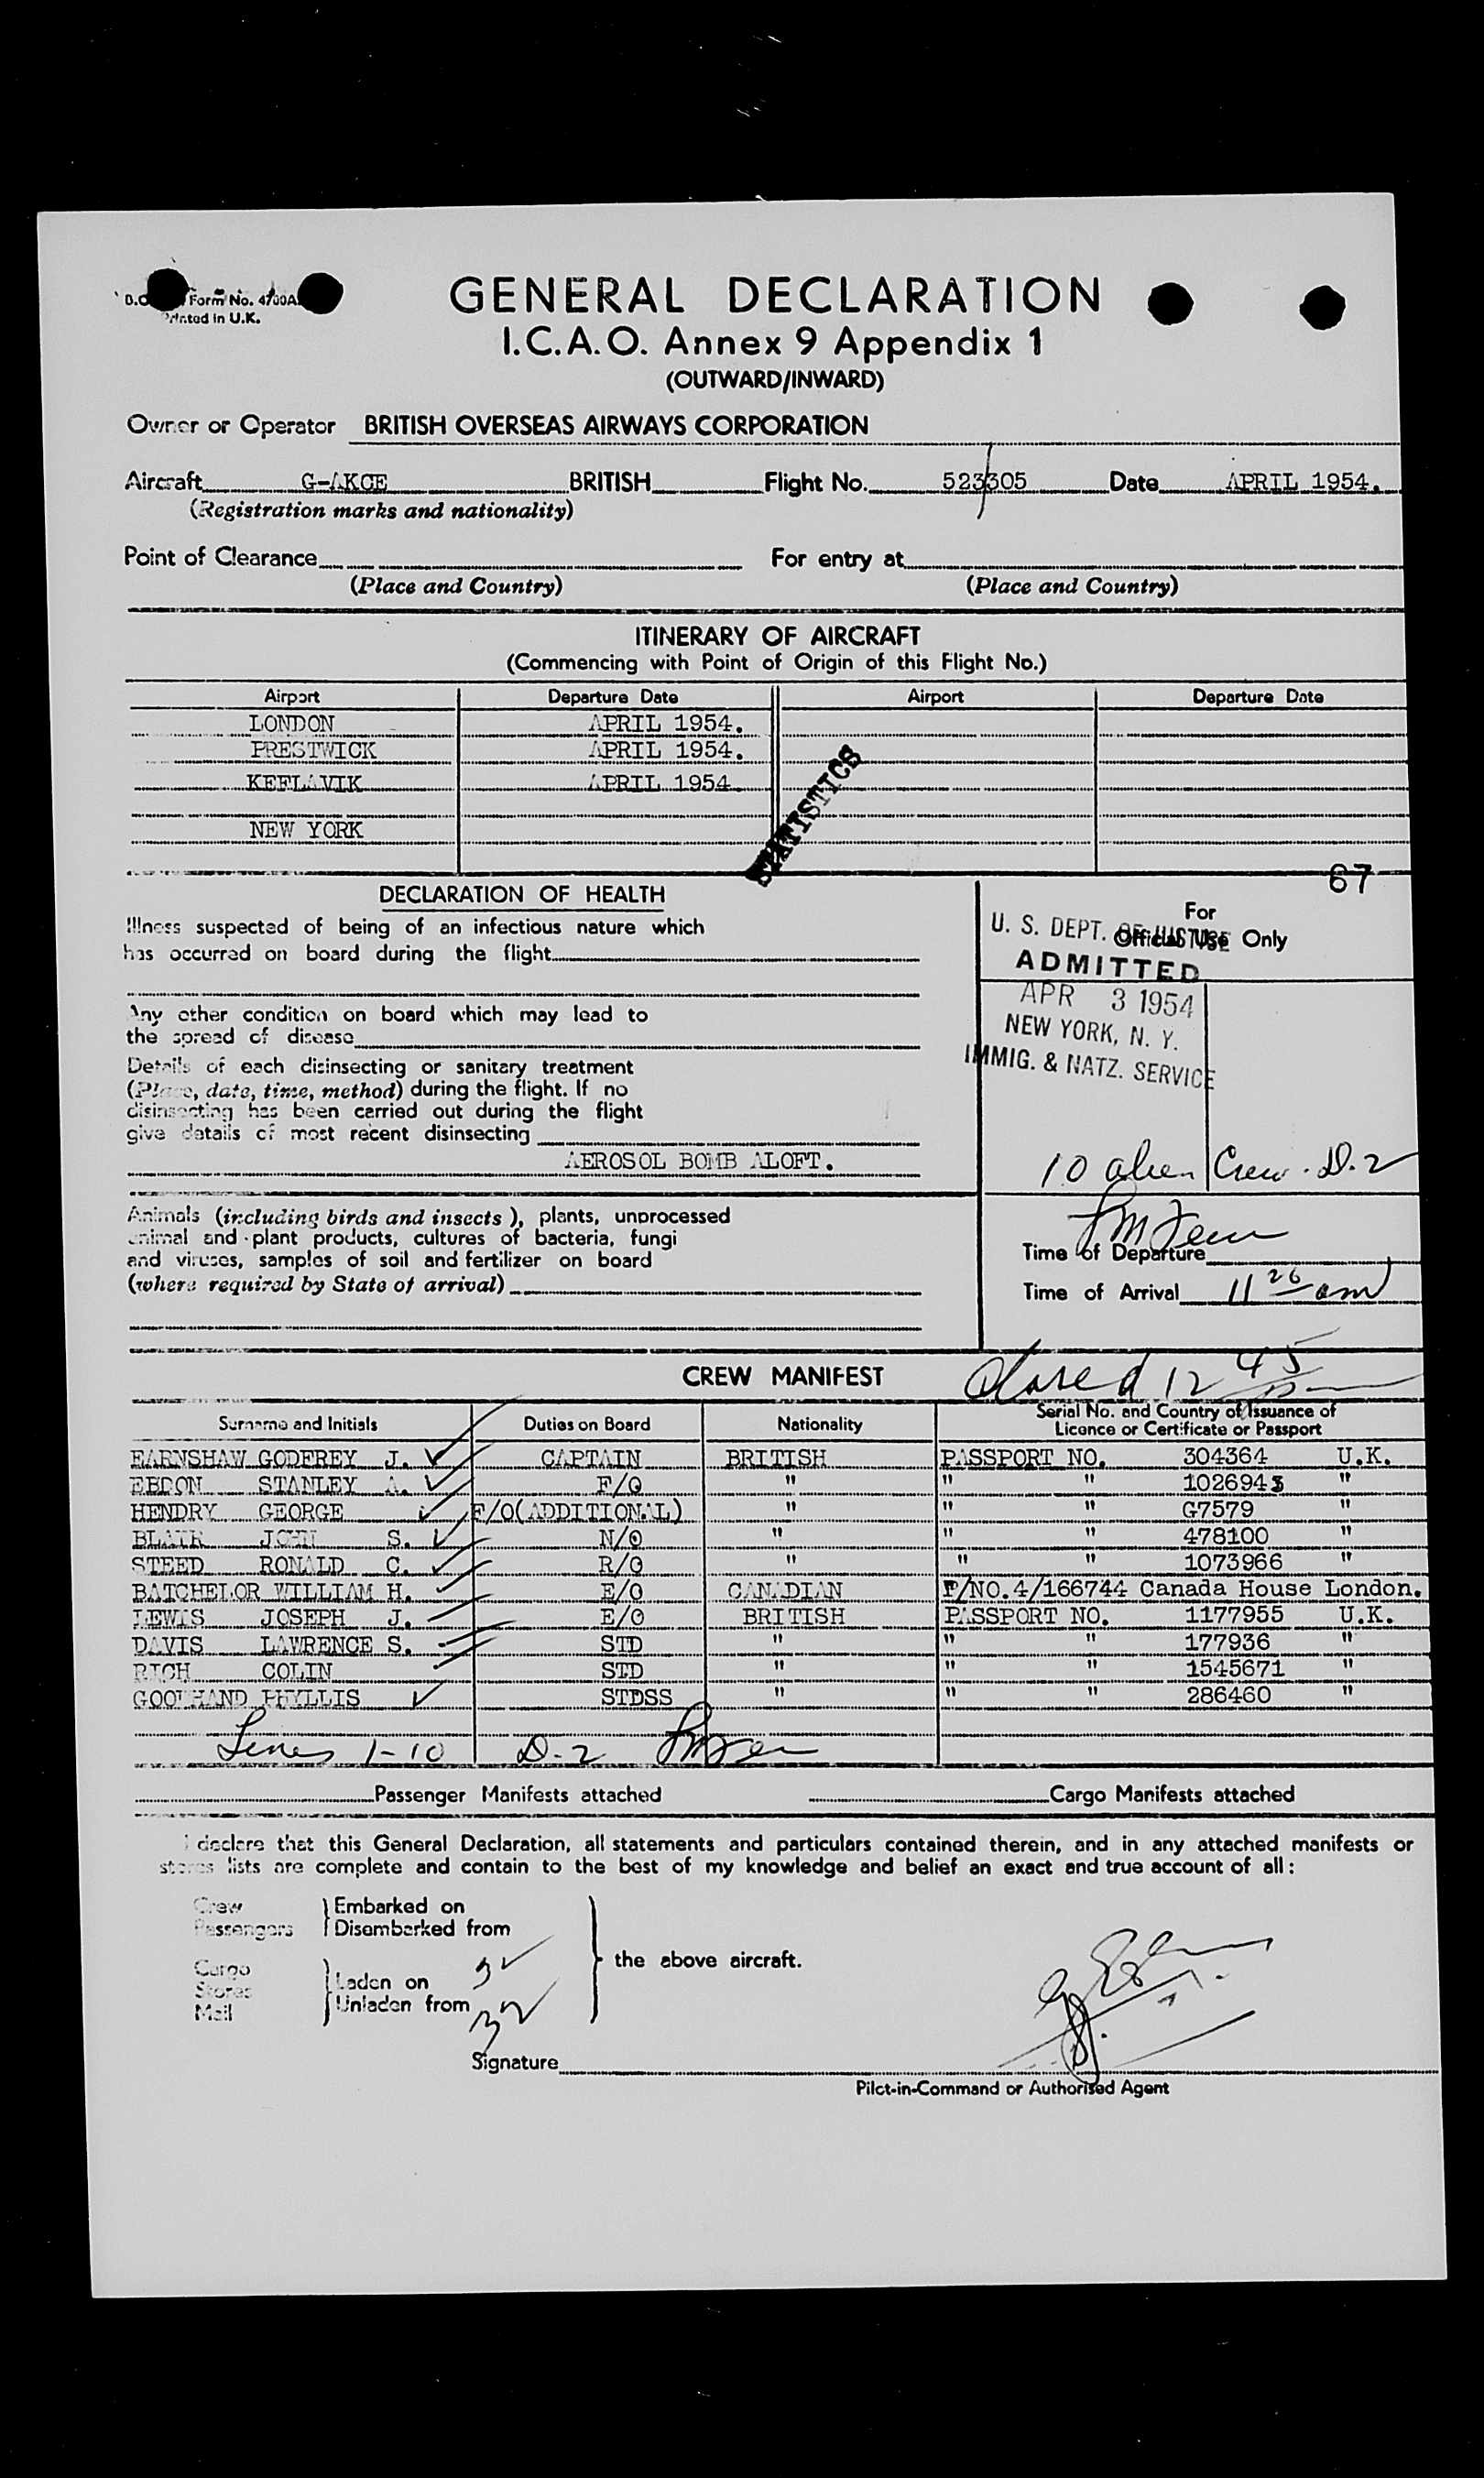 Form No. 4700A
Printed in U.K.
GENERAL DECLARATION
I.C.A.O. Annex 9 Appendix 1
(OUTWARD/INWARD)
Owner or Operator BRITISH OVERSEAS AIRWAYS CORPORATION
Aircraft G-AKCE BRITISH Flight No. 523/305 Date APRIL 1954.
(Registration marks and nationality)
Point of Clearance For entry at
(Place and Country) (Place and Country)
ITINERARY OF AIRCRAFT
(Commencing with Point of Origin of this Flight No.)
Airport Departure Date Airport Departure Date
LONDON APRIL 1954.
PRESTWICK APRIL 1954.
KEFLAVIK APRIL 1954.
NEW YORK
STATISTICS
67
DECLARATION OF HEALTH
Illness suspected of being of an infectious nature which
has occurred on board during the flight
Any other condition on board which may lead to
the spread of disease
Details of each disinsecting or sanitary treatment
(Place, date, time, method) during the flight. If no
disinsecting has been carried out during the flight
give details of most recent disinsecting
AEROSOL BOMB ALOFT.
Animals (including birds and insects), plants, unprocessed
animal and plant products, cultures of bacteria, fungi
and viruses, samples of soil and fertilizer on board
(where required by State of arrival)
For
Official Use Only
U. S. DEPT. OF JUSTICE
ADMITTED
APR 3 1954
NEW YORK, N. Y.
IMMIG. & NATZ. SERVICE
10 alien Crew - D.2
Time of Departure
Time of Arrival 11 26 am
CREW MANIFEST
Closed 12 45
Surname and Initials Duties on Board Nationality Serial No. and Country of Issuance of
Licence or Certificate or Passport
EARNSHAW GODFREY J. CAPTAIN BRITISH PASSPORT NO. 304364 U.K.
EBDON STANLEY A. F/O " " " 1026943 "
HENDRY GEORGE F/O(ADDITIONAL) " " " G7579 "
BLAIR JOHN S. N/O " " " 478100 "
STEED RONALD C. R/O " " " 1073966 "
BATCHELOR WILLIAM H. E/O CANADIAN P/NO.4/166744 Canada House London.
LEWIS JOSEPH J. E/O BRITISH PASSPORT NO. 1177955 U.K.
DAVIS LAWRENCE S. STD " " " 177936 "
RICH COLIN STD " " " 1545671 "
PHYLLIS STDSS " " " 286460 "
Lines 1-10 D-2
Passenger Manifests attached Cargo Manifests attached
I declare that this General Declaration, all statements and particulars contained therein, and in any attached manifests or
stores lists are complete and contain to the best of my knowledge and belief an exact and true account of all:
Crew
Passengers
Embarked on
Disembarked from
Cargo
Stores
Mail
Laden on
Unladen from
the above aircraft.
Signature
Pilot-in-Command or Authorised Agent